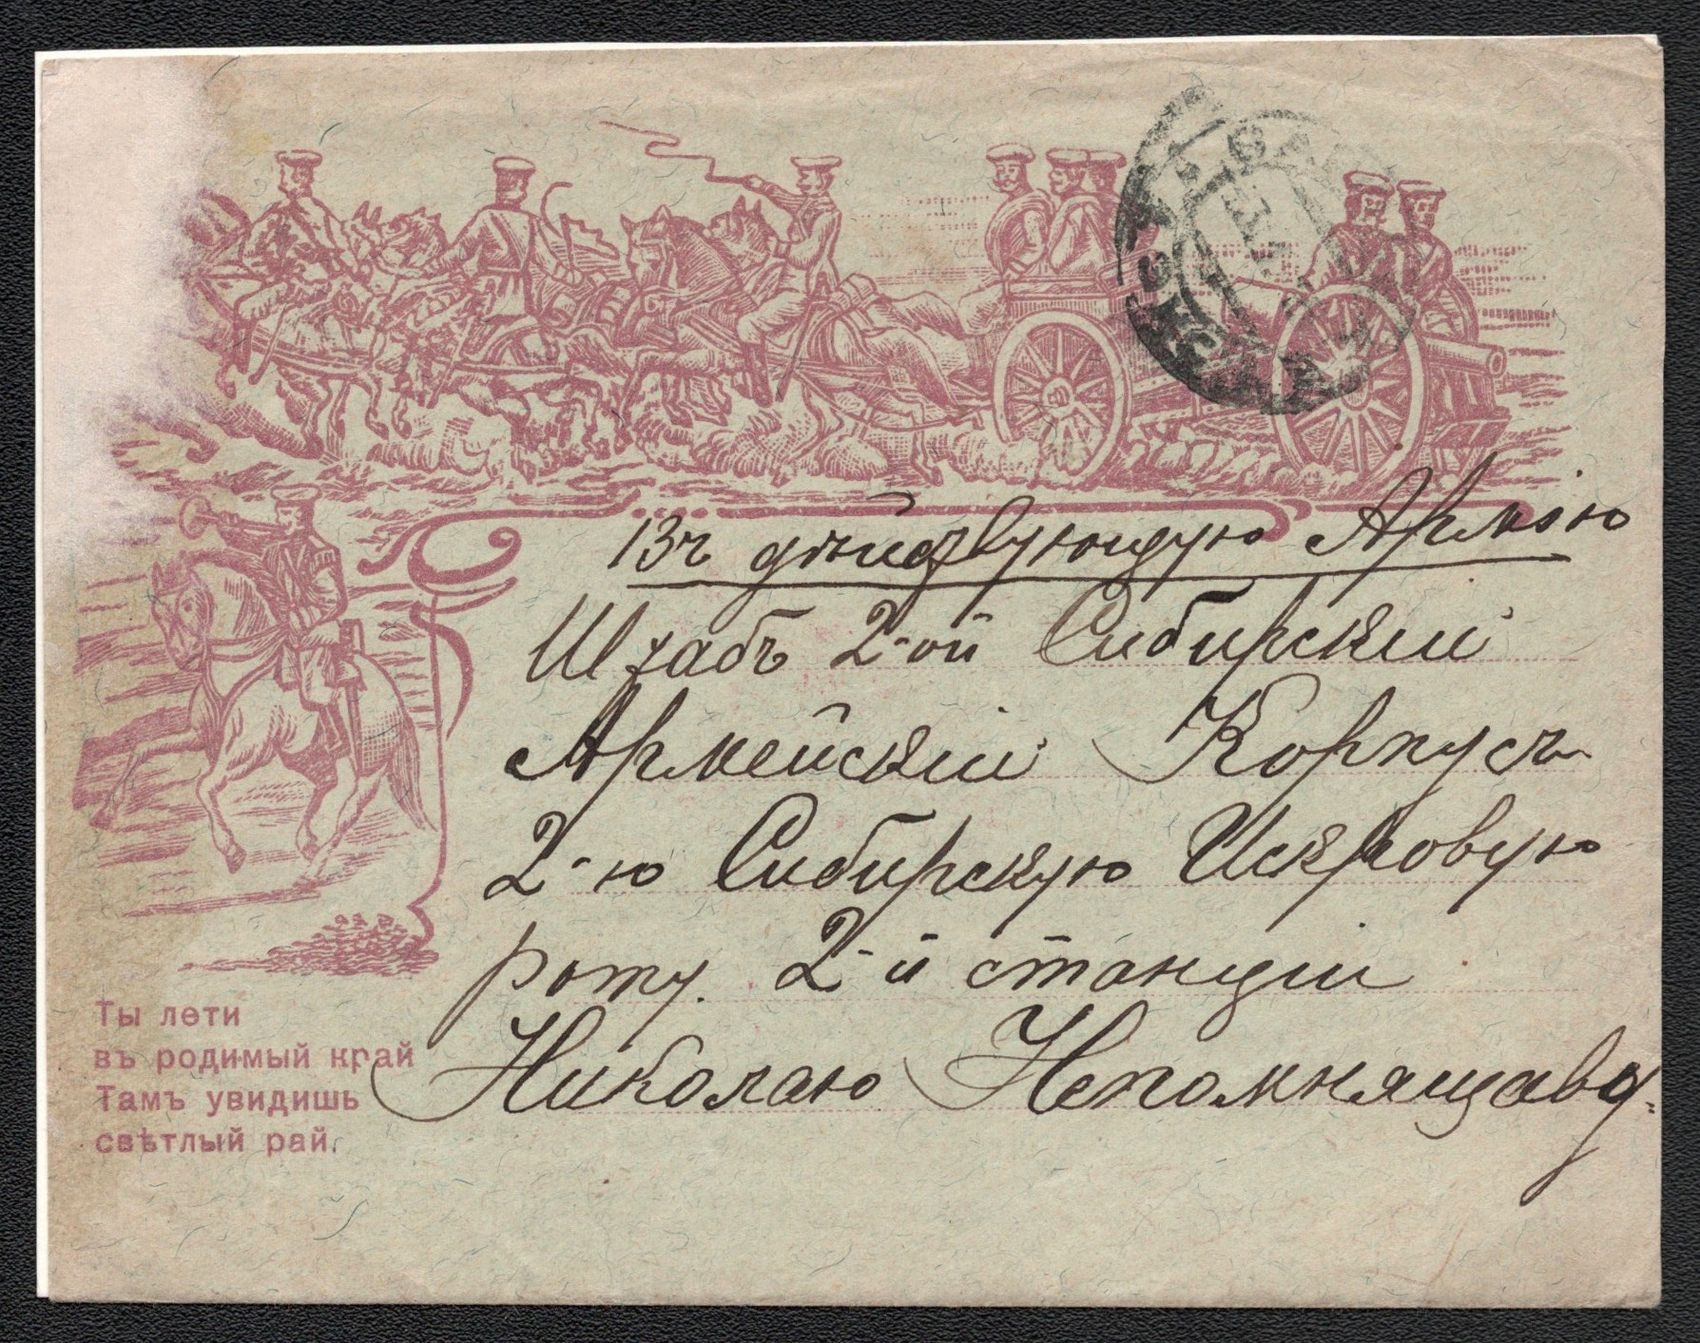 Въ дѣйствующую Армію
Штабъ 2-ой Сибирскій
Армейскій Корпусъ
2-ю Сибирскую Искровую
роту. 2-й станціи
Николаю Непомнящаву.
Ты лети
въ родимый край
Тамъ увидишь
свѣтлый рай.